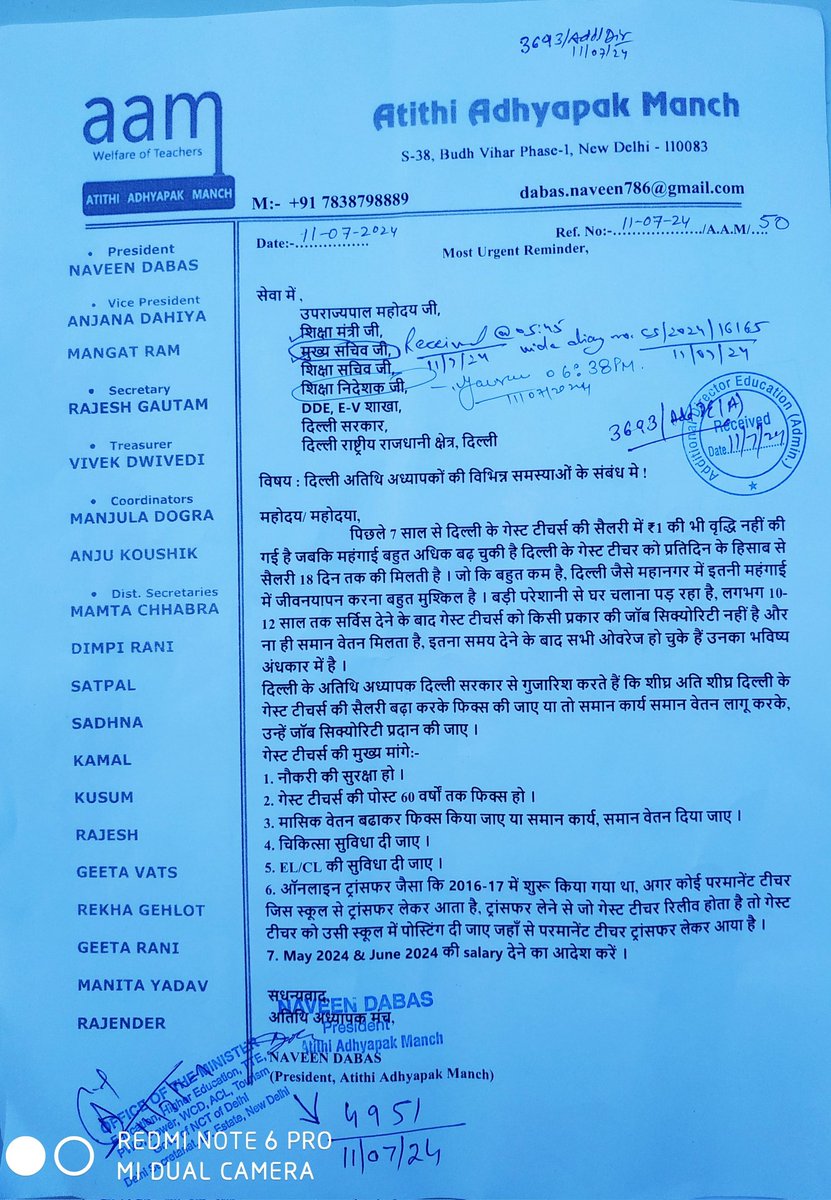 3693/Add Dir
11/07/24
aam
Welfare of Teachers
ATITHI ADHYAPAK MANCH
Atithi Adhyapak Manch
S-38, Budh Vihar Phase-1, New Delhi - 110083
M:- +91 7838798889
dabas.naveen786@gmail.com
Date:-11-07-2024
Ref. No:-11-07-24/A.A.M/50
Most Urgent Reminder,
• President
NAVEEN DABAS
• Vice President
ANJANA DAHIYA
MANGAT RAM
• Secretary
RAJESH GAUTAM
• Treasurer
VIVEK DWIVEDI
• Coordinators
MANJULA DOGRA
ANJU KOUSHIK
• Dist. Secretaries
MAMTA CHHABRA
DIMPI RANI
SATPAL
SADHNA
KAMAL
KUSUM
RAJESH
GEETA VATS
REKHA GEHLOT
GEETA RANI
MANITA YADAV
RAJENDER
सेवा में ,
उपराज्यपाल महोदय जी,
शिक्षा मंत्री जी,
मुख्य सचिव जी,
शिक्षा सचिव जी,
शिक्षा निदेशक जी,
DDE, E-V शाखा,
दिल्ली सरकार,
दिल्ली राष्ट्रीय राजधानी क्षेत्र, दिल्ली
Received @ 05:45
11/7/24
vide diary no. CS/2024/16165
11/07/24
06:38PM.
11/07/2024
3693/
Additional Director Education (Admin.)
Received
Date 11/7/24
विषय : दिल्ली अतिथि अध्यापकों की विभिन्न समस्याओं के संबंध मे !
महोदय/ महोदया,
पिछले 7 साल से दिल्ली के गेस्ट टीचर्स की सैलरी में ₹1 की भी वृद्धि नहीं की
गई है जबकि महंगाई बहुत अधिक बढ़ चुकी है दिल्ली के गेस्ट टीचर को प्रतिदिन के हिसाब से
सैलरी 18 दिन तक की मिलती है । जो कि बहुत कम है, दिल्ली जैसे महानगर में इतनी महंगाई
में जीवनयापन करना बहुत मुश्किल है । बड़ी परेशानी से घर चलाना पड़ रहा है, लगभग 10-
12 साल तक सर्विस देने के बाद गेस्ट टीचर्स को किसी प्रकार की जॉब सिक्योरिटी नहीं है और
ना ही समान वेतन मिलता है, इतना समय देने के बाद सभी ओवरेज हो चुके हैं उनका भविष्य
अंधकार में है ।
दिल्ली के अतिथि अध्यापक दिल्ली सरकार से गुजारिश करते हैं कि शीघ्र अति शीघ्र दिल्ली के
गेस्ट टीचर्स की सैलरी बढ़ा करके फिक्स की जाए या तो समान कार्य समान वेतन लागू करके,
उन्हें जॉब सिक्योरिटी प्रदान की जाए ।
गेस्ट टीचर्स की मुख्य मांगे:-
1. नौकरी की सुरक्षा हो ।
2. गेस्ट टीचर्स की पोस्ट 60 वर्षों तक फिक्स हो ।
3. मासिक वेतन बढाकर फिक्स किया जाए या समान कार्य, समान वेतन दिया जाए ।
4. चिकित्सा सुविधा दी जाए ।
5. EL/CL की सुविधा दी जाए ।
6. ऑनलाइन ट्रांसफर जैसा कि 2016-17 में शुरू किया गया था, अगर कोई परमानेंट टीचर
जिस स्कूल से ट्रांसफर लेकर आता है, ट्रांसफर लेने से जो गेस्ट टीचर रिलीव होता है तो गेस्ट
टीचर को उसी स्कूल में पोस्टिंग दी जाए जहाँ से परमानेंट टीचर ट्रांसफर लेकर आया है ।
7. May 2024 & June 2024 की salary देने का आदेश करें ।
सधन्यवाद,
अतिथि अध्यापक मंच,
NAVEEN DABAS
President
Atithi Adhyapak Manch
NAVEEN DABAS
(President, Atithi Adhyapak Manch)
OFFICE OF THE MINISTER
Education, Higher Education, TTE,
PWD, Power, WCD, ACL, Tourism
Govt. of NCT of Delhi
Delhi Secretariat, I.P. Estate, New Delhi
4951
11/07/24
REDMI NOTE 6 PRO
MI DUAL CAMERA